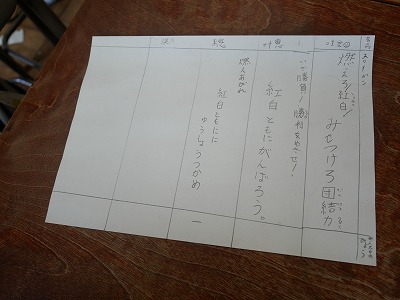 スローガン
燃える紅白!みせつけろ団結力
いざ勝負!勝利をめざせ!
紅白ともにがんばろう。
燃えあがれ
紅白ともに
ゆうしょうつかめ
一